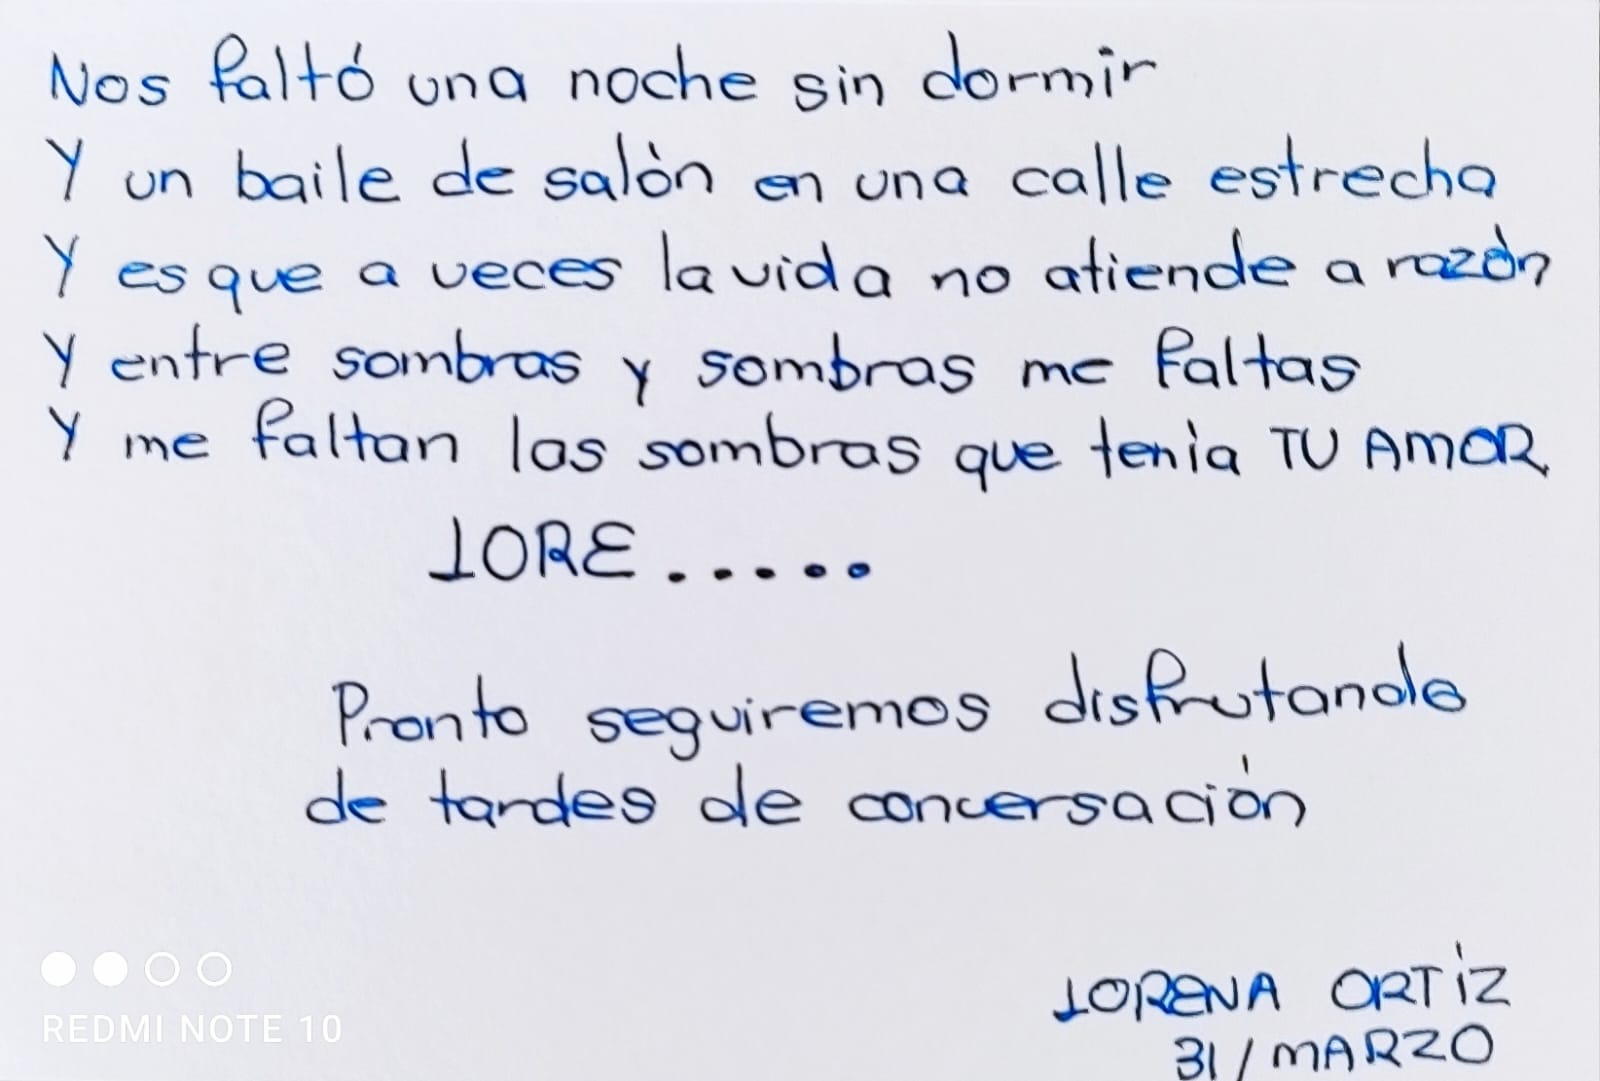 Nos faltó una noche sin dormir
Y un baile de salón en una calle estrecha
Y es que a veces la vida no atiende a razón
Y entre sombras y sombras me faltas
Y me faltan las sombras que tenía TU AMOR
LORE.....
Pronto seguiremos disfrutando
de tardes de conversación
LORENA ORTÍZ
31/MARZO
REDMI NOTE 10